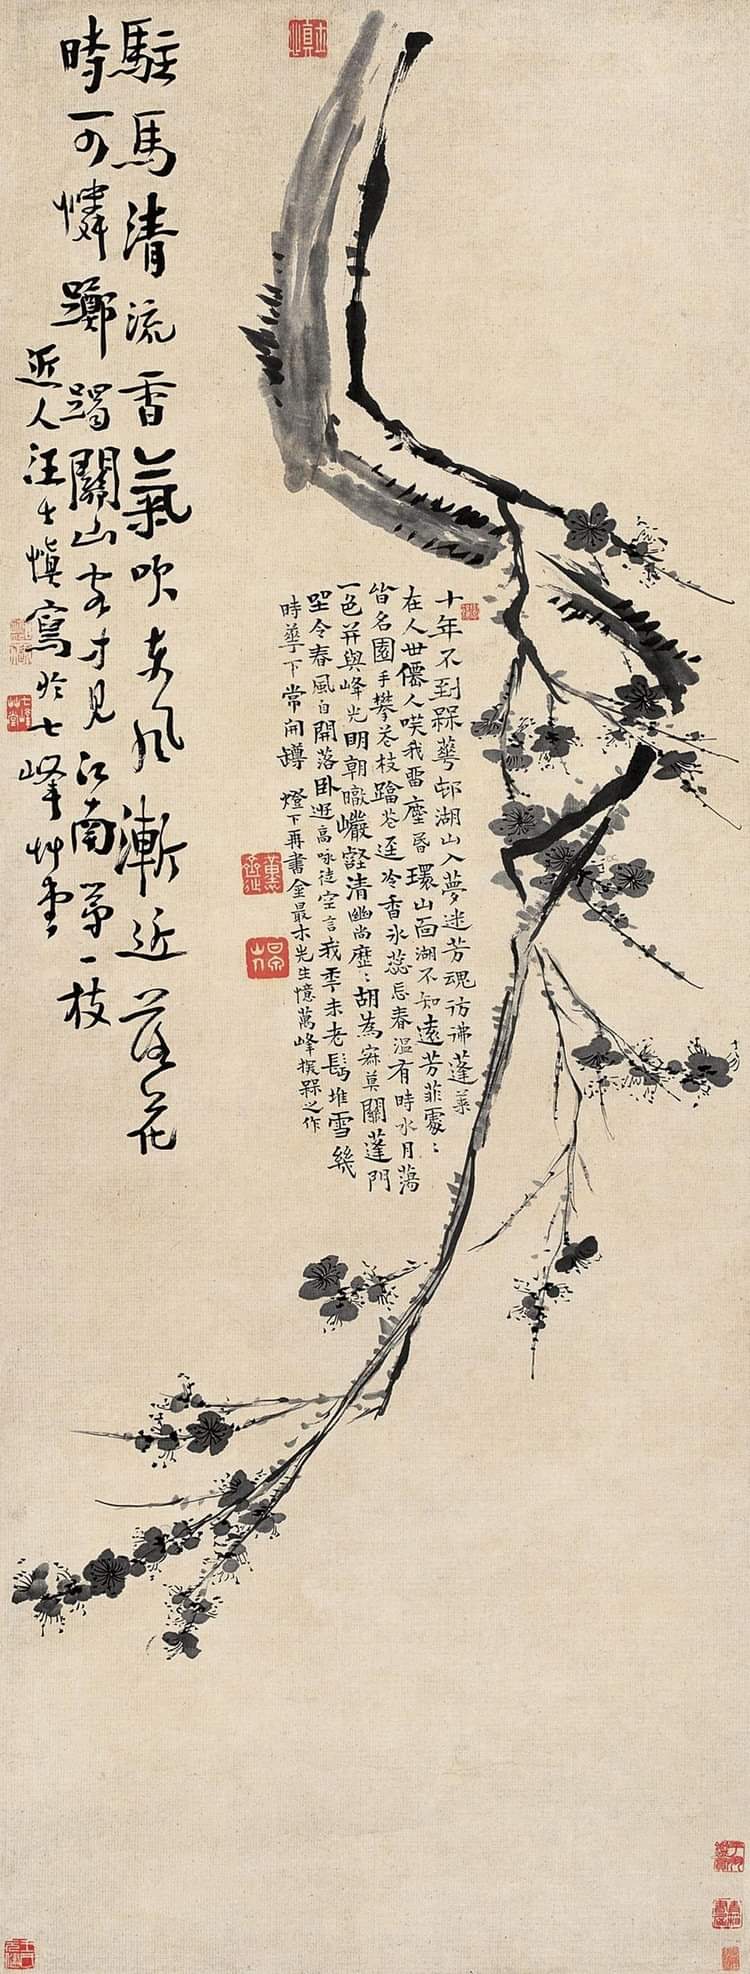 十年不到槑華邨湖山入夢迷芳魂彷彿蓬萊
在人世僊人唉我留塵昏環山面湖不知遠芳菲處：
皆名園手攀花枝蹋花逕冷香氷蕊忘春溫有時水月蕩
一色并與峰光明朝暾巖壑清幽尚歷：胡為寂莫關蓬門
坐令春風自開落臥遊高咏徒空言我季未老鬢堆雪幾
時華下常開罇 燈下再書金最木先生憶萬峰探槑之作
駐馬清流香氣吹東風漸近落花
時可憐躑躅關山客才見江南第一枝
近人汪士慎寫於七峰艸堂